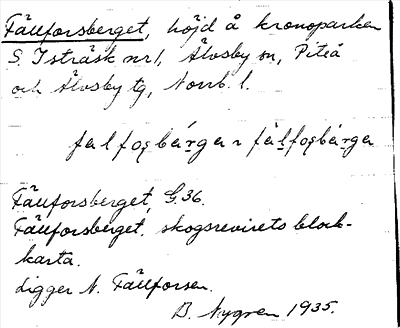 Fällforsberget, höjd å kronoparken
S. Isträsk nr 1, Älvsby sn, Piteå
och Älvsby tg, Norrb. l.
fälfo̧sbárga ~ fä̀lfo̧sbärga
Fällforsberget, G. 36.
Fällforsberget. skogsrevirets block-
karta.
ligger N. Fällforsen.
B. Nygren 1935.